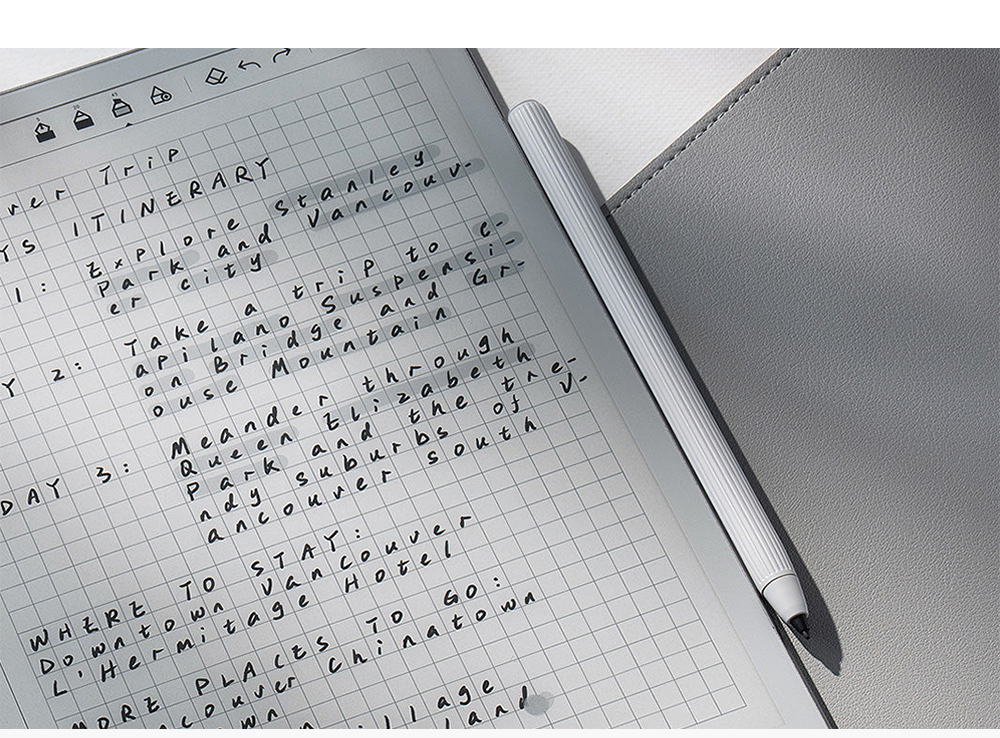 ver Trip
YS ITINERARY
1: Explore Stanley
Park and Vancouv-
er city
Y 2: Take a trip to C-
apilano Suspensi-
on Bridge and Gr-
ouse Mountain
DAY 3: Meander through
Queen Elizabeth
Park and the tre-
ndy suburbs of V-
ancouver south
WHERE TO STAY:
Downtown Vancouver
L'Hermitage Hotel
MORE PLACES TO GO:
ncouver Chinatown
wn
illage
land